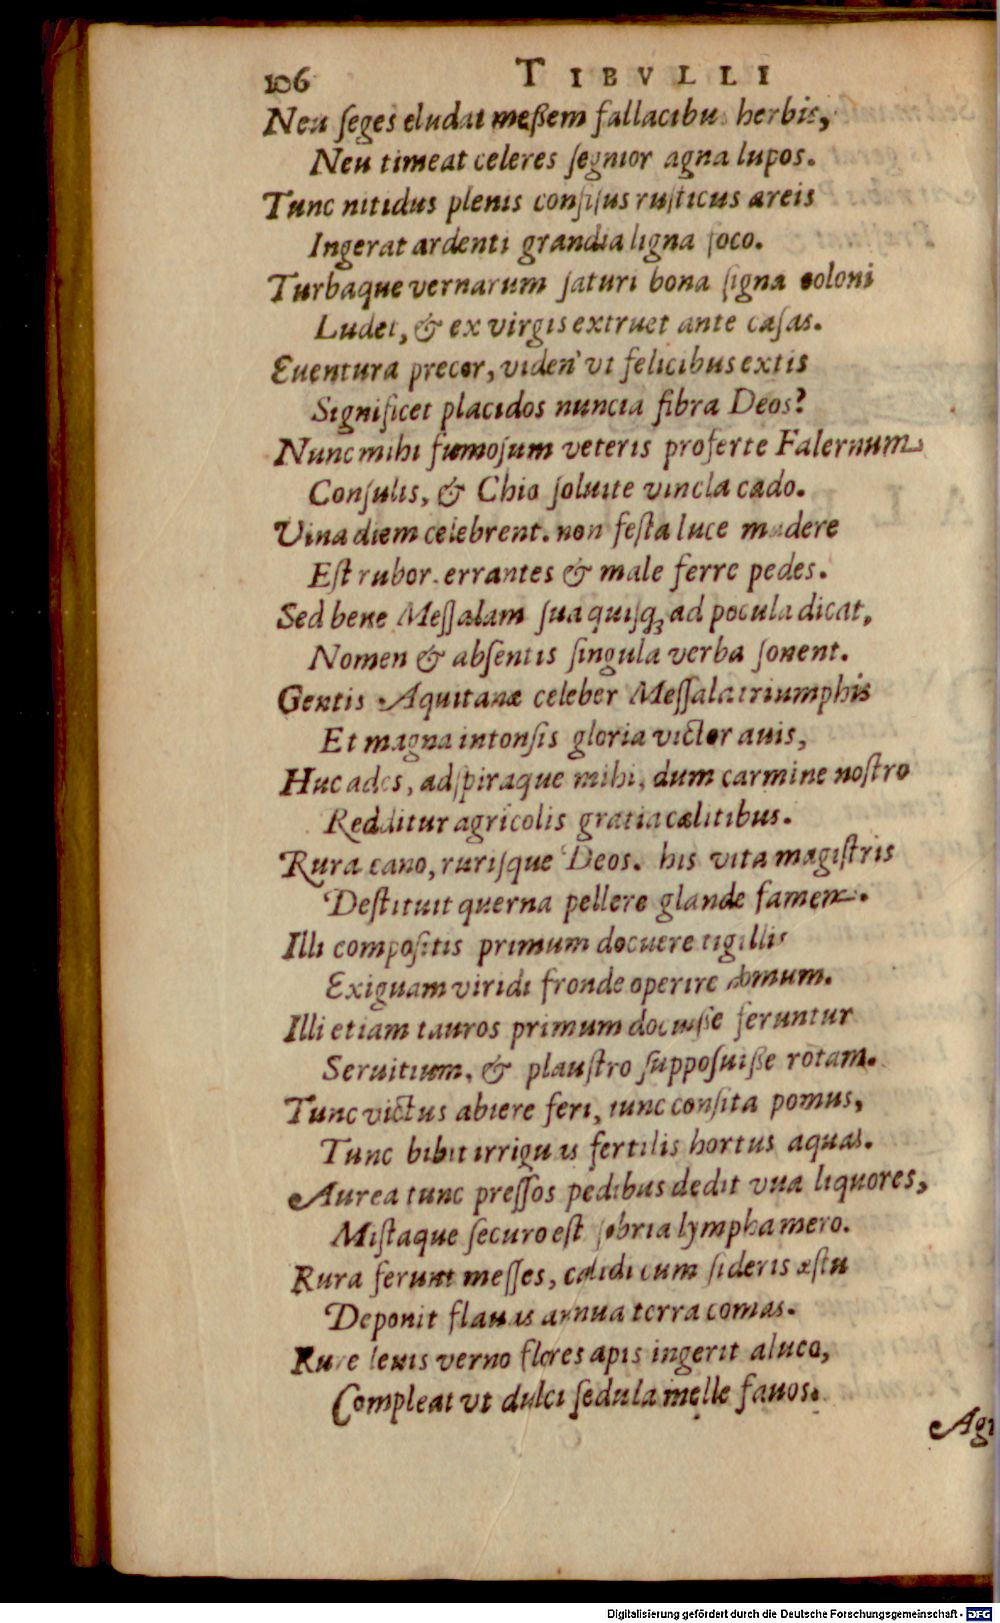 106 TIBVLLI
Neu ſeges eludat meßem fallacibus herbis,
Neu timeat celeres ſegnior agna lupos.
Tunc nitidus plenis confiſus ruſticus areis
Ingerat ardenti grandia ligna foco.
Turbaque vernarum ſaturi bona ſigna coloni
Ludet, & ex virgis extruet ante caſas.
Euentura precor, viden' vt felicibus extis
Significet placidos nuncia fibra Deos?
Nunc mihi fumoſum veteris proferte Falernum
Conſulis, & Chio ſoluite vincla cado.
Vina diem celebrent. non feſta luce madere
Eſt rubor. errantes & male ferre pedes.
Sed bene Meſſalam ſua quiſq; ad pocula dicat,
Nomen & abſentis ſingula verba ſonent.
Gentis Aquitanæ celeber Meſſala triumphis
Et magna intonſis gloria victor auis,
Huc ades, adſpiraque mihi, dum carmine noſtro
Redditur agricolis gratia cælitibus.
Rura cano, ruriſque Deos. his vita magiſtris
Deſtituit querna pellere glande famem.
Illi compoſitis primum docuere tigillis
Exiguam viridi fronde operire domum.
Illi etiam tauros primum docuiße feruntur
Seruitium, & plauſtro ſuppoſuiße rotam.
Tunc victus abiere feri, tunc conſita pomus,
Tunc bibit irriguas fertilis hortus aquas.
Aurea tunc preſſos pedibus dedit vua liquores,
Miſtaque ſecuro eſt ſobria lympha mero.
Rura ferunt meſſes, calidi cum ſideris æſtu
Deponit flauas annua terra comas.
Rure leuis verno flores apis ingerit alueo,
Compleat vt dulci ſedula melle fauos.
Agri
Digitalisierung gefördert durch die Deutsche Forschungsgemeinschaft - DFG